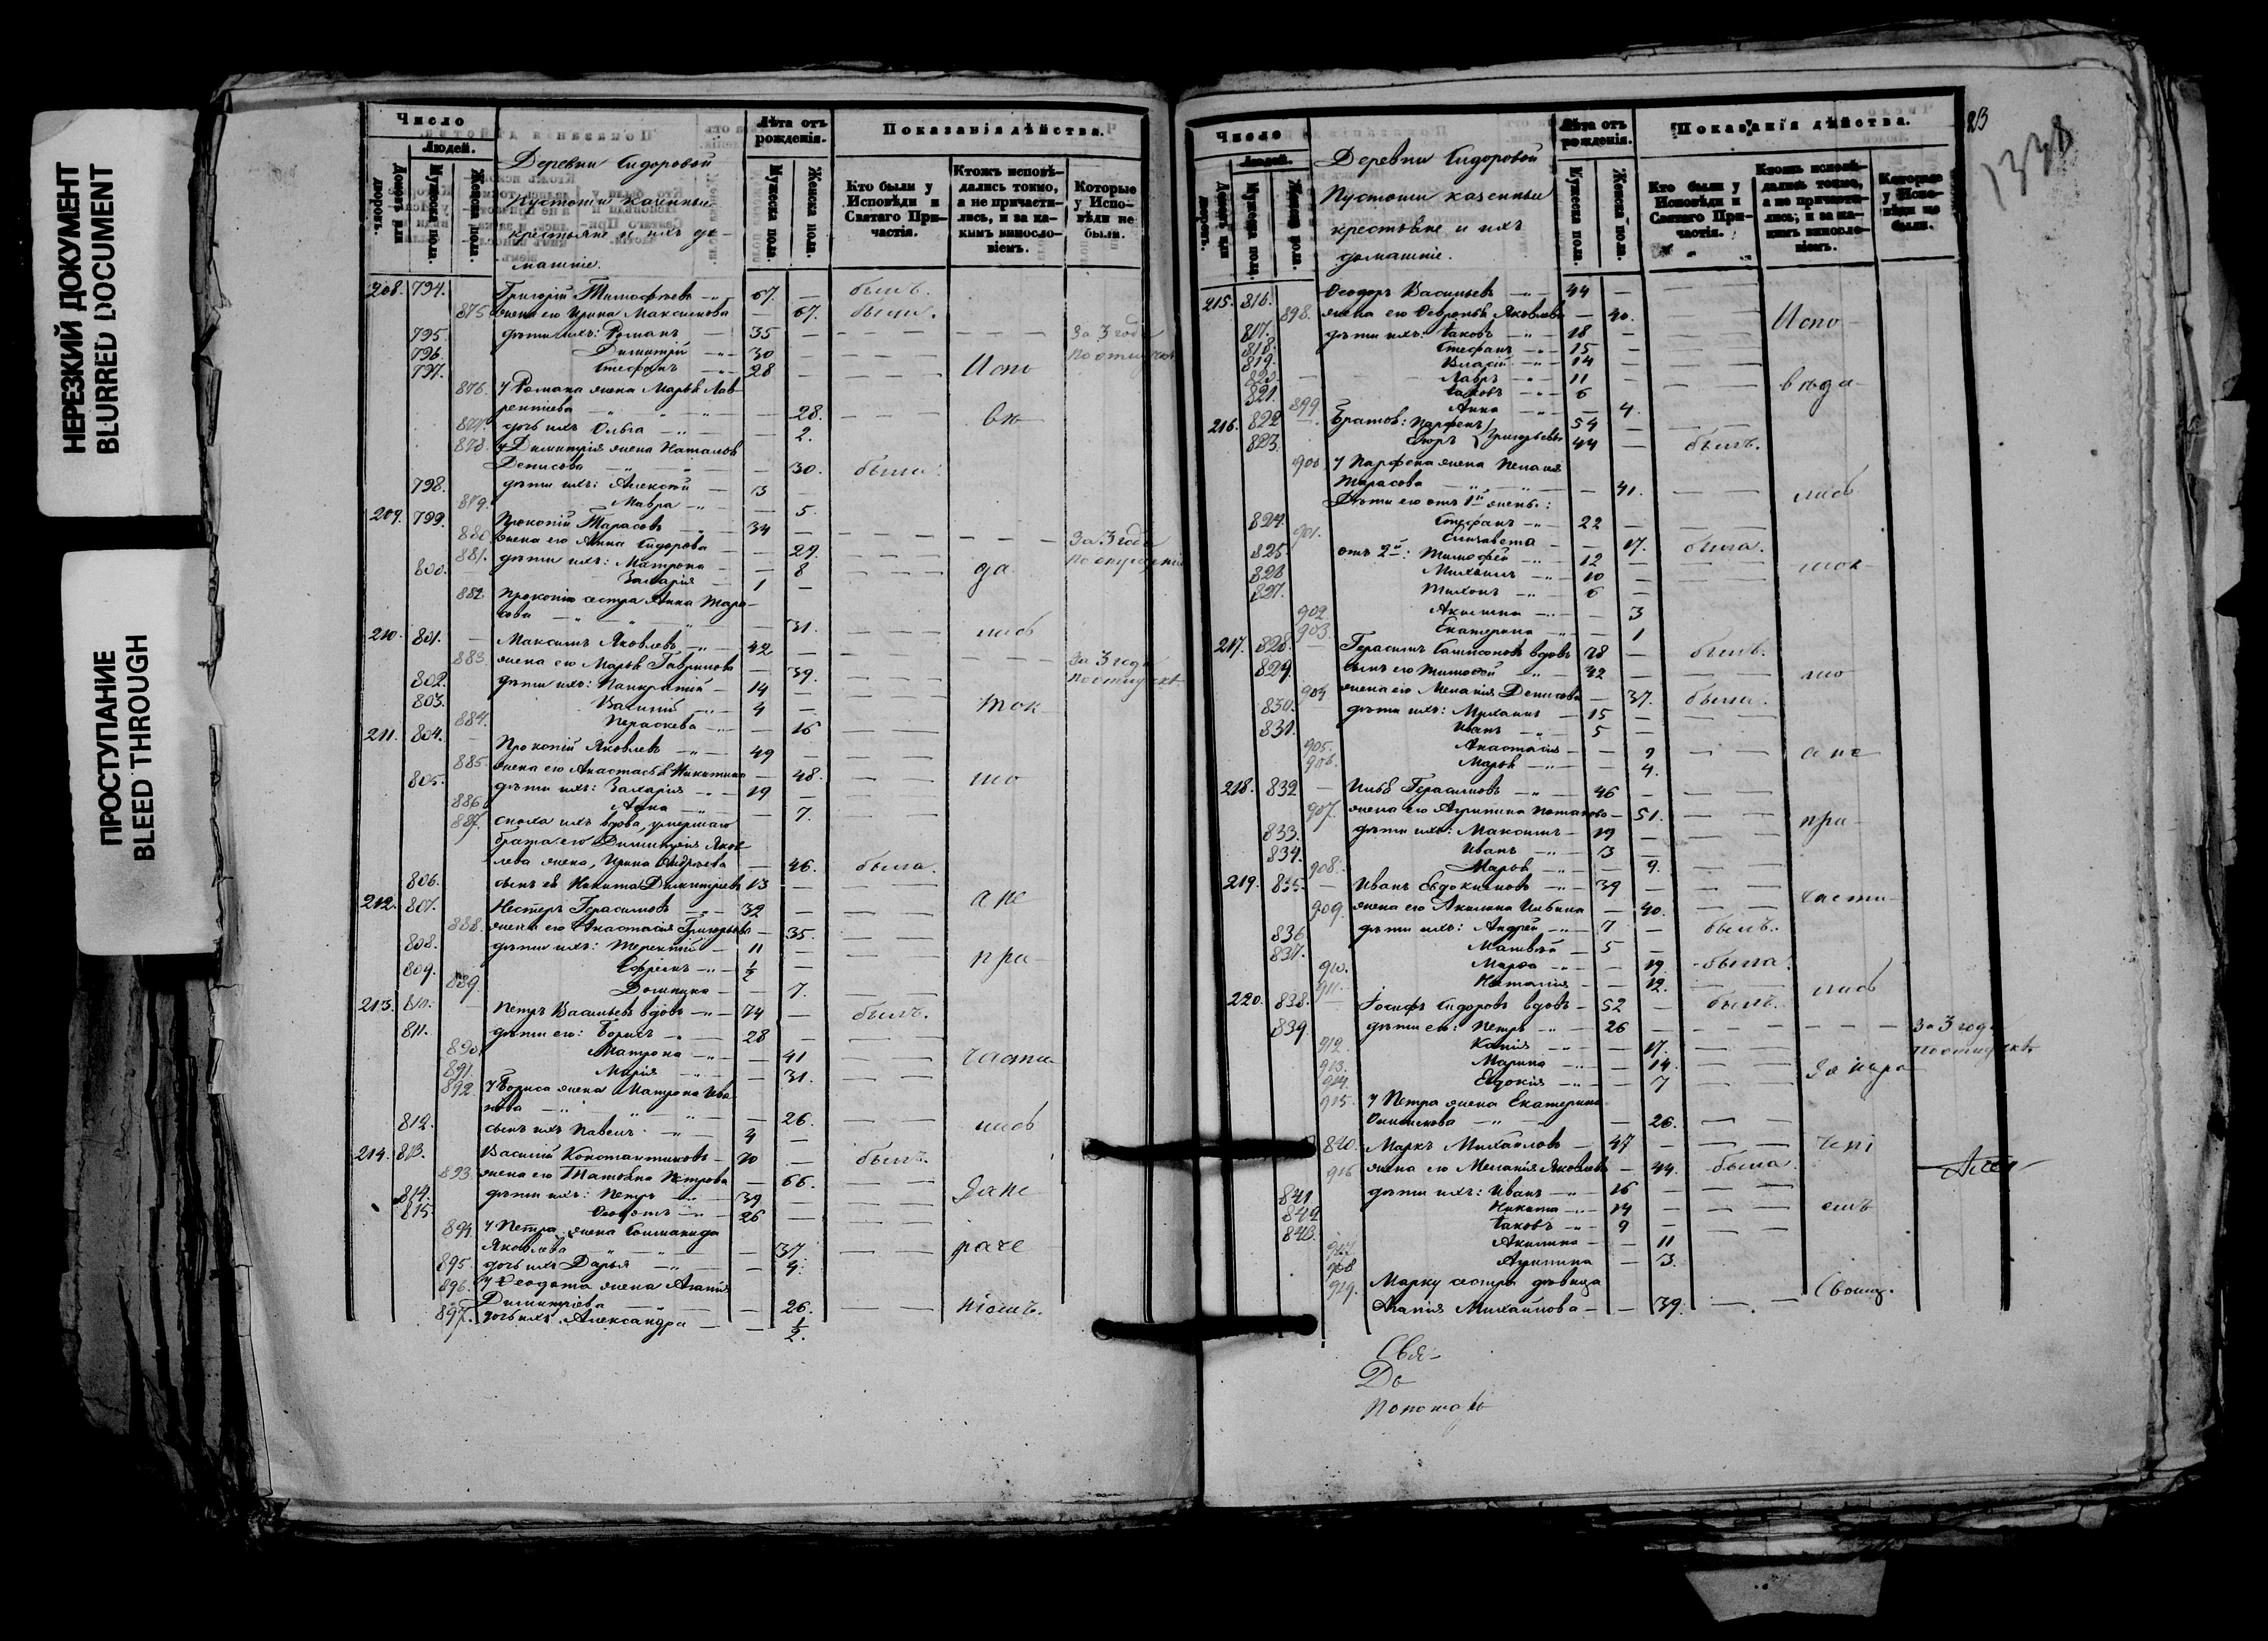 НЕРЕЗКИЙ ДОКУМЕНТ
BLURRED DOCUMENT
ПРОСТУПАНИЕ
BLEED THROUGH
Число
Людей.
Домовъ или дворовъ.
Мужеска пола.
Женска пола.
Деревни Сидоровой
Пустоши казенные
крестьяне и ихъ до-
машніе.
Лѣта отъ рожденія.
Мужеска пола.
Женска пола.
Показанія дѣйства.
Кто были у Исповѣди и Святаго При-частія.
Ктожъ исповѣ-дались токмо, а не причасти-лись, и за ка-кимъ винословіемъ.
Которые у Испо-вѣди не были.
208. 794. Григорій Тимофѣевъ 67. — былъ.
875 жена его Ирина Максимова — 67. была.
795. дѣти ихъ: Романъ 35 — За 3 года
796. Димитрій 30 —
797. Стефанъ 28 — Испо
876. У Романа жена Марья Лав-
рентіева — 28.
877. дочь ихъ Ольга — 2. вѣ
878. У Димитрія жена Наталья
Денисова — 30. была.
798. дѣти ихъ: Алексѣй 13 —
879. Мавра — 5.
209. 799. Прокопій Тарасовъ 34 —
880 жена его Анна Сидорова — 29. За 3 года
881. дѣти ихъ: Матрона — 8 да
800. Захарія 1 —
882 Прокопія сестра Анна Тара-
сова — 31. лись
210. 801. Максимъ Яковлевъ 42 —
883. жена его Марья Гаврилова — 39. За 3 года
802. дѣти ихъ: Панкратій 14 —
803. Василій 4 — ток
884. Параскева — 16
211. 804. Прокопій Яковлевъ 49 —
885. жена его Анастасья Никитина — 48. мо
805. дѣти ихъ: Захарія 19 —
886 Анна — 7.
887. сноха ихъ вдова, умершаго
брата его Димитрія Яков-
лева жена, Ирина Андреева — 46 была.
806. сынъ ея Никита Димитріевъ 13 —
212. 807. Несторъ Герасимовъ 32 — а не
888. жена его Анастасія Григорьева — 35.
808. дѣти ихъ: Терентій 11 — при
809. Ефремъ ½ —
889 Домника — 7.
213. 810. Петръ Васильевъ вдовъ 74 — былъ.
811. дѣти его: Борисъ 28 —
890. Матрона — 41 части
891. Марія — 31.
892. У Бориса жена Матрона Ива-
нова — 26.
812. сынъ ихъ Павелъ 4 — лись
214. 813. Василій Константиновъ 70 — былъ.
893. жена его Татьяна Петрова — 66.
814. дѣти ихъ: Петръ 39 — за не
815. Ѳеодотъ 26 —
894. У Петра жена
Яковлева — 37. раче
895. дочь ихъ Дарья — 4.
896. У Ѳеодота жена Агапія
Димитріева — 26. ніемъ.
897. дочь ихъ Александра — ½.
213
1338
Число
Людей.
Домовъ или дворовъ.
Мужеска пола.
Женска пола.
Деревни Сидоровой
Пустоши казенные
крестьяне и ихъ
домашніе.
Лѣта отъ рожденія.
Мужеска пола.
Женска пола.
Показанія дѣйства.
Кто были у Исповѣди и Святаго При-частія.
Ктожъ исповѣ-дались токмо, а не причасти-лись, и за ка-кимъ винословіемъ.
Которые у Испо-вѣди не были.
215. 816. Ѳеодоръ Васильевъ 44 —
898. жена его Ѳевронья Яковлева — 40. Испо
817. дѣти ихъ: Іаковъ 18 —
818. Стефанъ 15 —
819. Власій 14 —
820. Лавръ 11 — вѣда
821. Іаковъ 6
899 Анна — 4.
216. 822 Братья: Парфенъ Григорьевы 54
823. Егоръ 44 — былъ.
900 У Парфена жена Пелагія
Тарасова — 41. лись
Дѣти его отъ 1й жены:
824. Стефанъ 22 —
901. Елисавета — 17. была.
825 отъ 2й: Тимофей 12 — ток
826 Михаилъ 10 —
827. Тихонъ 6 —
902 Акилина — 3
903. Екатерина — 1
217. 828. Герасимъ Самсоновъ вдовъ 78 — былъ.
829. сынъ его Тимофей 42 мо
904 жена его Меланія Денисова — 37. была.
830. дѣти ихъ: Михаилъ 15 —
831. Иванъ 5 —
905. Анастасія — 9 а не
906. Марья — 4.
218. 832 Илья Герасимовъ 46 —
907. жена его Агрипина Потапова — 51. при
833. дѣти ихъ: Максимъ 19 —
834. Иванъ 13 —
908. Марья — 9.
219. 835. Иванъ Евдокимовъ 39 — части
909. жена его Акилина Ильина — 40.
836 дѣти ихъ: Андрей 7 — былъ.
837. Матвѣй 5 —
910. Марѳа — 19 была.
911. Наталія — 12. лись
220. 838. Іосифъ Сидоровъ вдовъ 52 былъ.
839. дѣти его: Петръ 26 — За 3 года
912. Ксенія — 17.
913. Марина — 14. За нера
914. Евдокія — 7
915. У Петра жена Екатерина
— 26.
840. Маркъ Михайловъ 47 — чені
916 жена его Меланія Яковлева — 44. была.
841 дѣти ихъ: Иванъ 16 —
842 Никита 14 — емъ
843. Іаковъ 9 —
917 Акилина — 11
918 Агрипина — 3.
919. Марку сестра дѣвица
Агапія Михайлова — 39. Своим.
Свя-
До
Пономарь